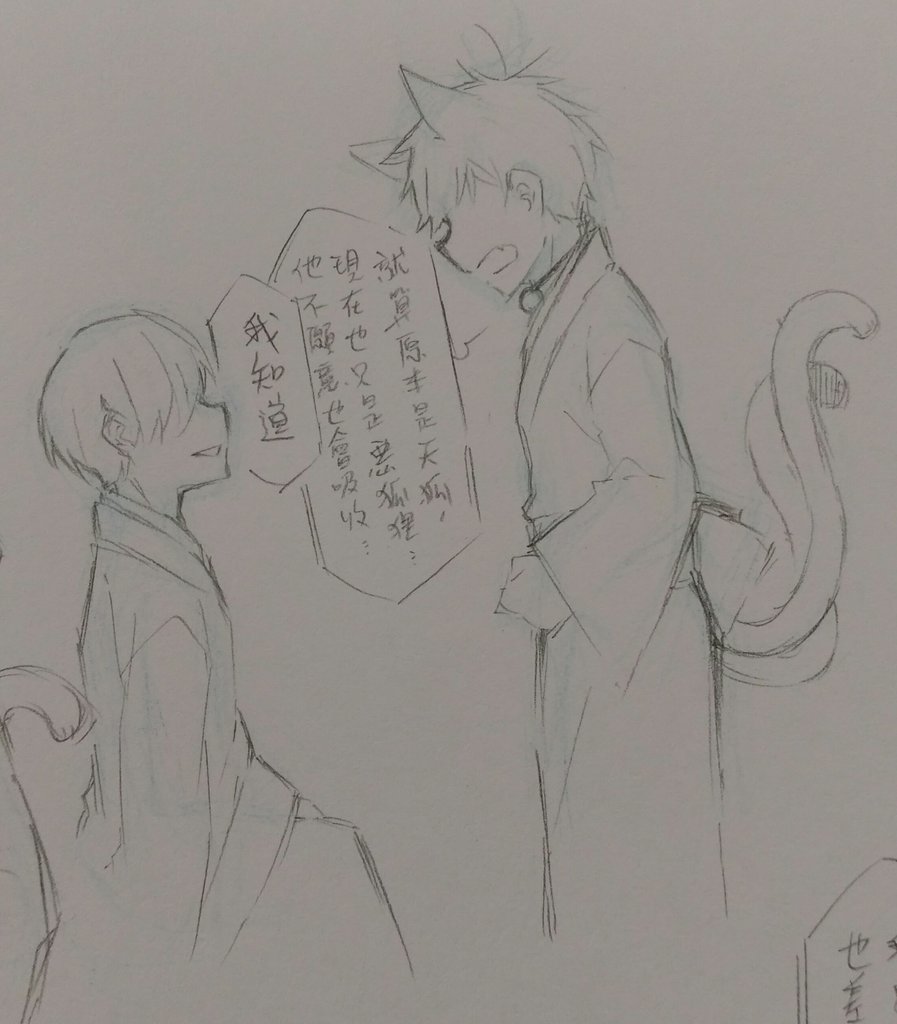 就算原本是天狐，
現在也只是悪狐狸…
他不願意也會吸收…
我知道
也差